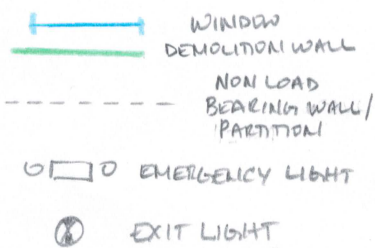 WINDOW
DEMOLITION WALL
NON LOAD
BEARING WALL/
PARTITION
EMERGENCY LIGHT
EXIT LIGHT